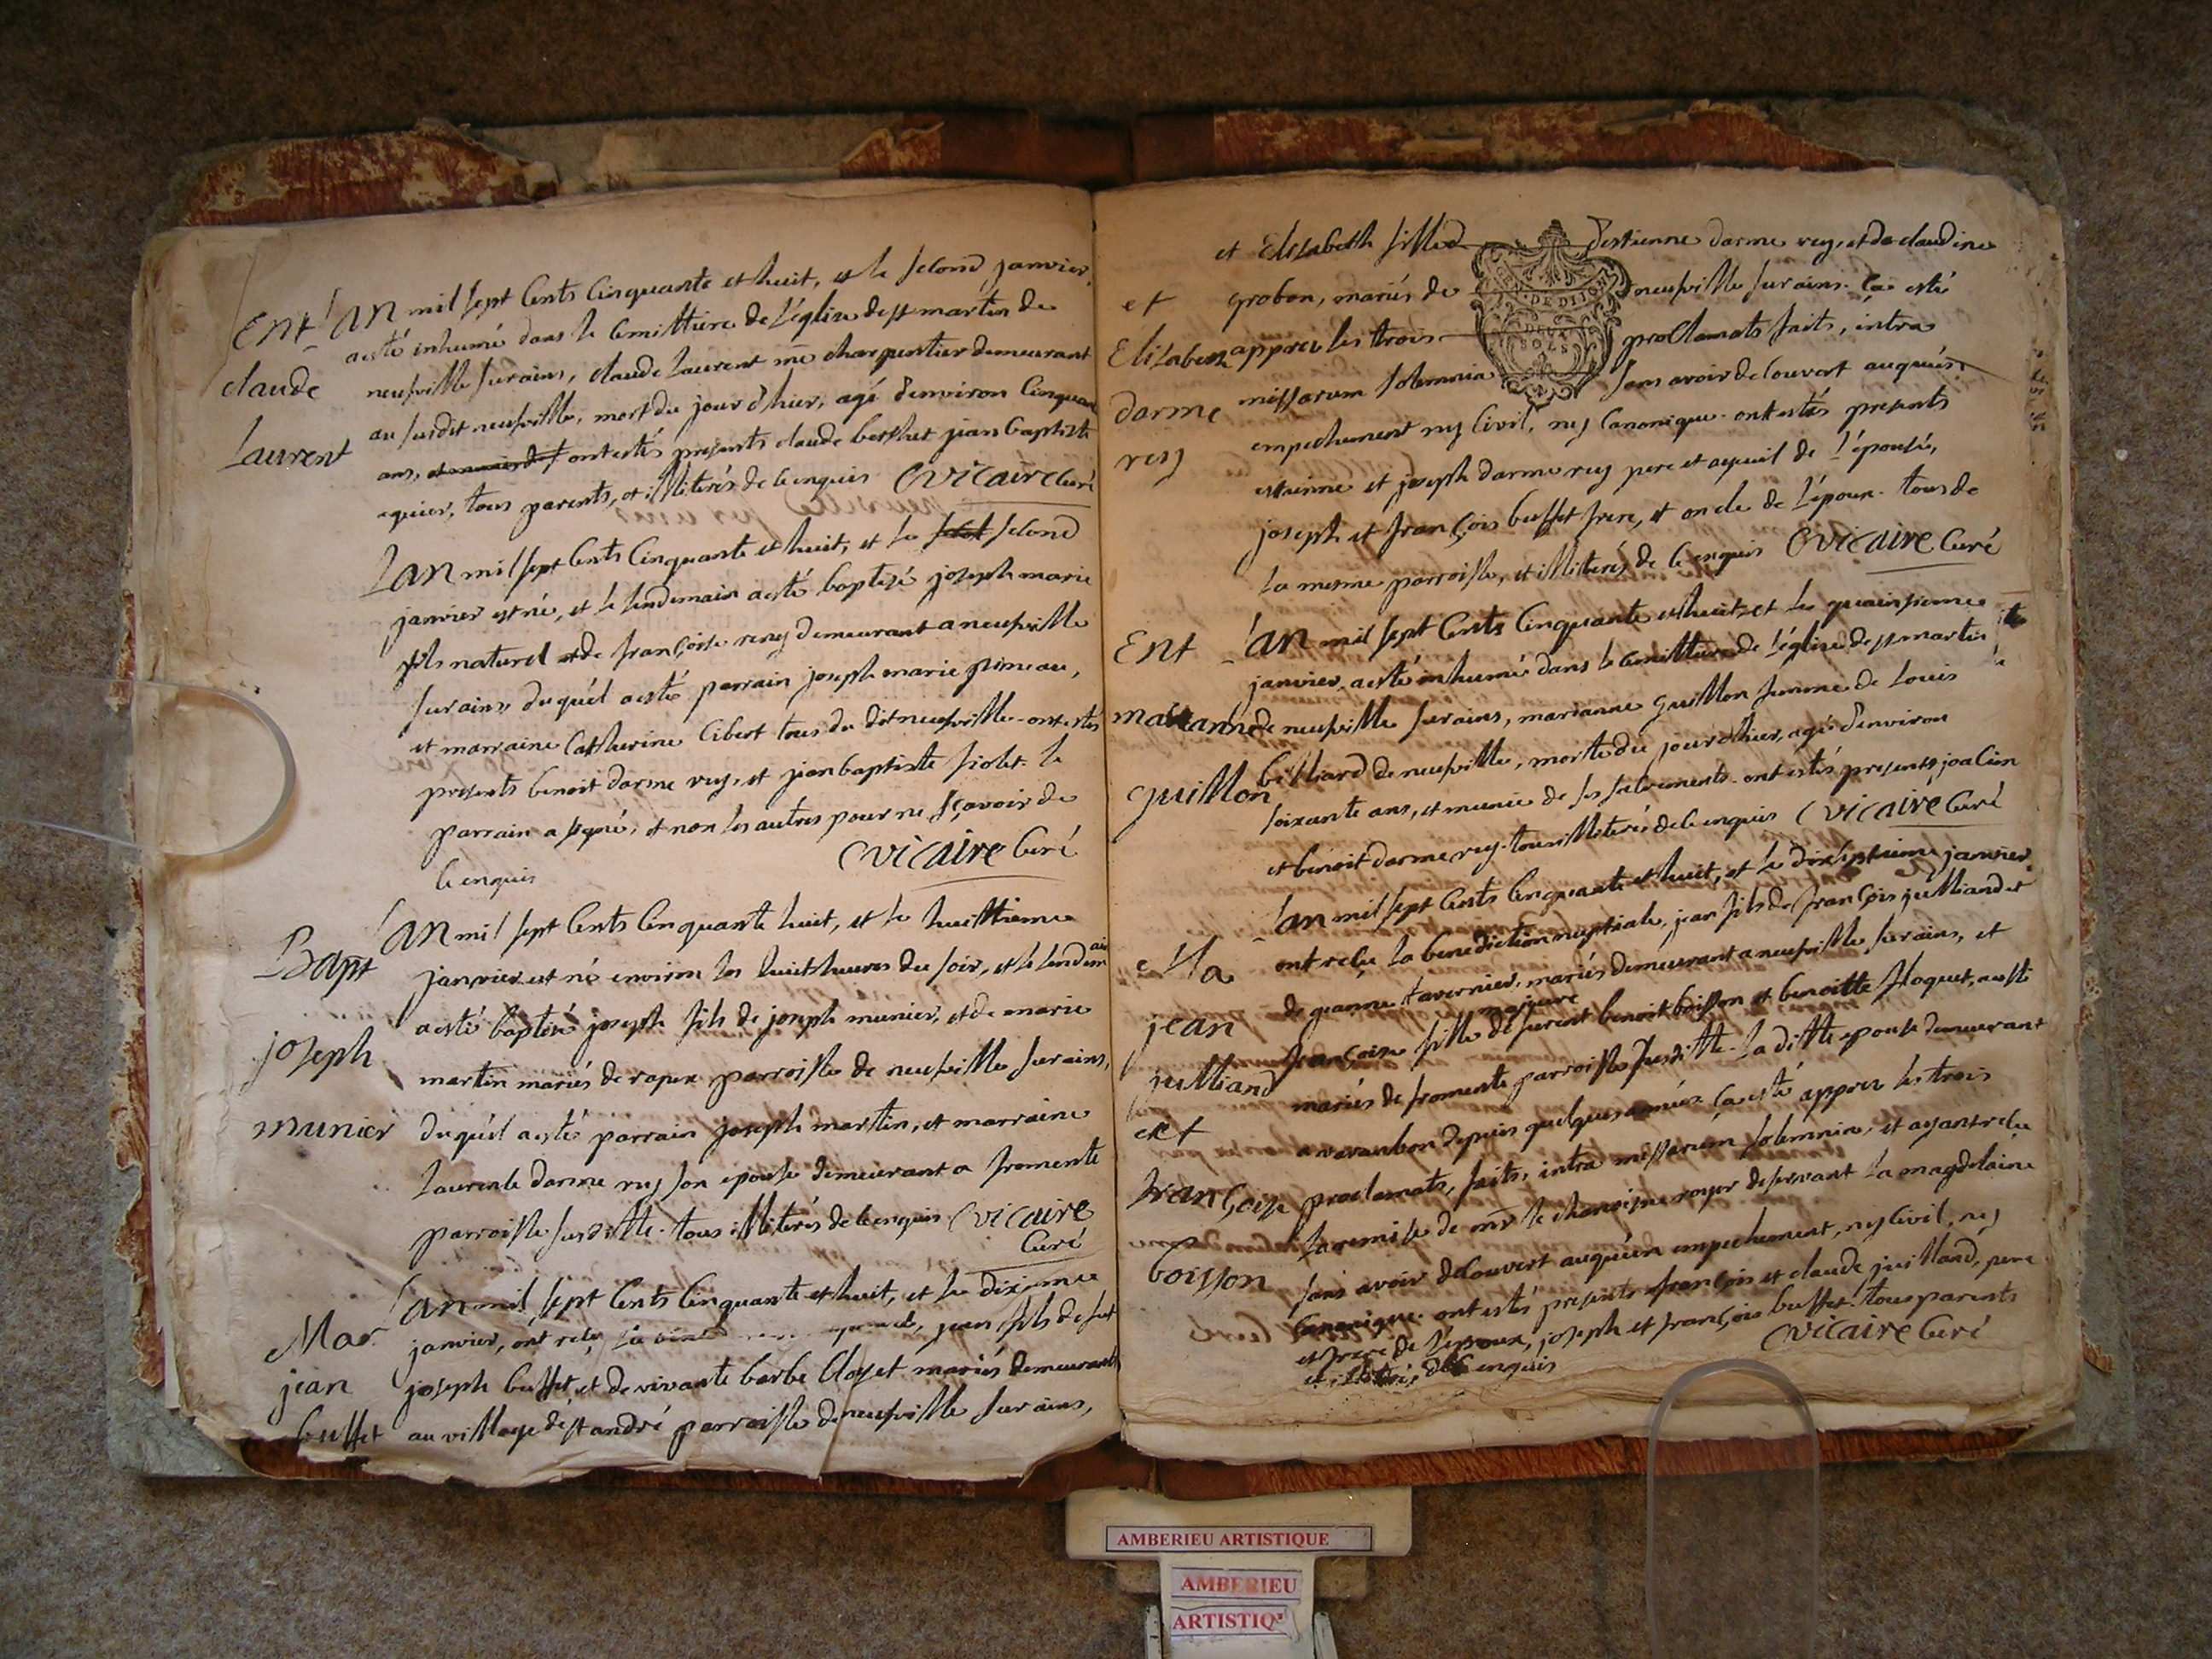 Ent
claude
Laurent
L'an mil sept Cents Cinquante et huit, et le second janvier
a esté inhumé dans le Cemittiere de l'église de st martin de
neufville sur ains, claude Laurent me charpentier demeurant
au susdit neufville, mort du jour d'hier, agé d'environ Cinquan
ans, ont estés presents claude berthet jean baptiste
aguier, tous parents, et illiterés de ce enquis Cvicaire Curé
L'an mil sept Cents Cinquante et huit, et le second
janvier est né, et le lendemain a esté baptisé joseph marie
fils naturel de françoise rey demeurant a neufville
sur ains, duquél a esté parrain joseph marie pineau,
et marraine Catherine Cibert tous du dit neufville - ont estés
presents benoit darme rey, et jean baptiste fiolet - le
parrain a signé, et non les autres pour ne sçavoir de
ce enquis Cvicaire Curé
Bapt
joseph
munier
L'an mil sept Cents Cinquante huit, et le huittieme
janvier est né environ les huit heures du soir, et le lendemain
a esté baptisé joseph fils de joseph munier, et de marie
martin mariés de rapex parroisse de neufville sur ains,
duquél a esté parrain joseph martin, et marraine
Laurence darme rey son epouse demeurant a fromente
parroisse susditte - tous illiterés de ce enquis Cvicaire
Curé
Mar
jean
buffet
L'an mil sept Cents Cinquante et huit, et le dixieme
janvier, ont reçu la jean fils de feu
joseph buffet, et de vivante barbe Closet mariés demeurant
au village de st andré parroisse de neufville sur ains,
et
Elizabeth
darme
rey
et Elizabeth fille d'estienne darme rey, et de claudine
grobon, mariés de neufville sur ains. ça esté
apprez les trois proclamats faits, intra
GEN. DE DIJON
DEUX
SOLS
missarum solemnia sans avoir decouvert auquun
empechement ny Civil, ny Canonique - ont estés presents
estienne et joseph darme rey pere et ayeuil de l'épouse,
joseph et françois buffet frere, et oncle de l'époux - tous de
la mesme parroisse, et illiterés de ce enquis Cvicaire Curé
Ent
marianne
guillon
L'an mil sept Cents Cinquante et huit, et le quainsieme
janvier, a esté inhumé dans le Cemittiere de l'église de st martin
de neufville sur ains, marianne guillon femme de Louis
belliard de neufville, morte du jour d'hier, agé d'environ
soixante ans, et munie de ses sacrements - ont estés presents joachin
et benoit darme rey - tous illiterés de ce enquis Cvicaire Curé
Ma
jean
julliand
et
françoise
boisson
L'an mil sept Cents Cinquante et huit, et le dixseptieme janvier
ont reçu la benediction nuptiale, jean fils de françois julliand et
de jeanne tavernier, mariés demeurant a neufville sur ains, et
françoise fille majeure de furent benoit boisson et benoitte floquet, aussi
mariés de fromente parroisse susditte - la ditte epouse demeurant
a varanbon depuis quelques années. ça esté apprez les trois
proclamats, faits, intra missarum solemnia, et ayant reçu
la remise de mr le chanoisne royer deservant la magdelaine
sans avoir decouvert auquun empechement, ny Civil, ny
Canonique - ont estés presents françois et claude juilland, pere
et frere de l'époux, joseph et françois buffet - tous parents
et illiterés de ce enquis Cvicaire Curé
AMBERIEU ARTISTIQUE
AMBERIEU
ARTISTIQ